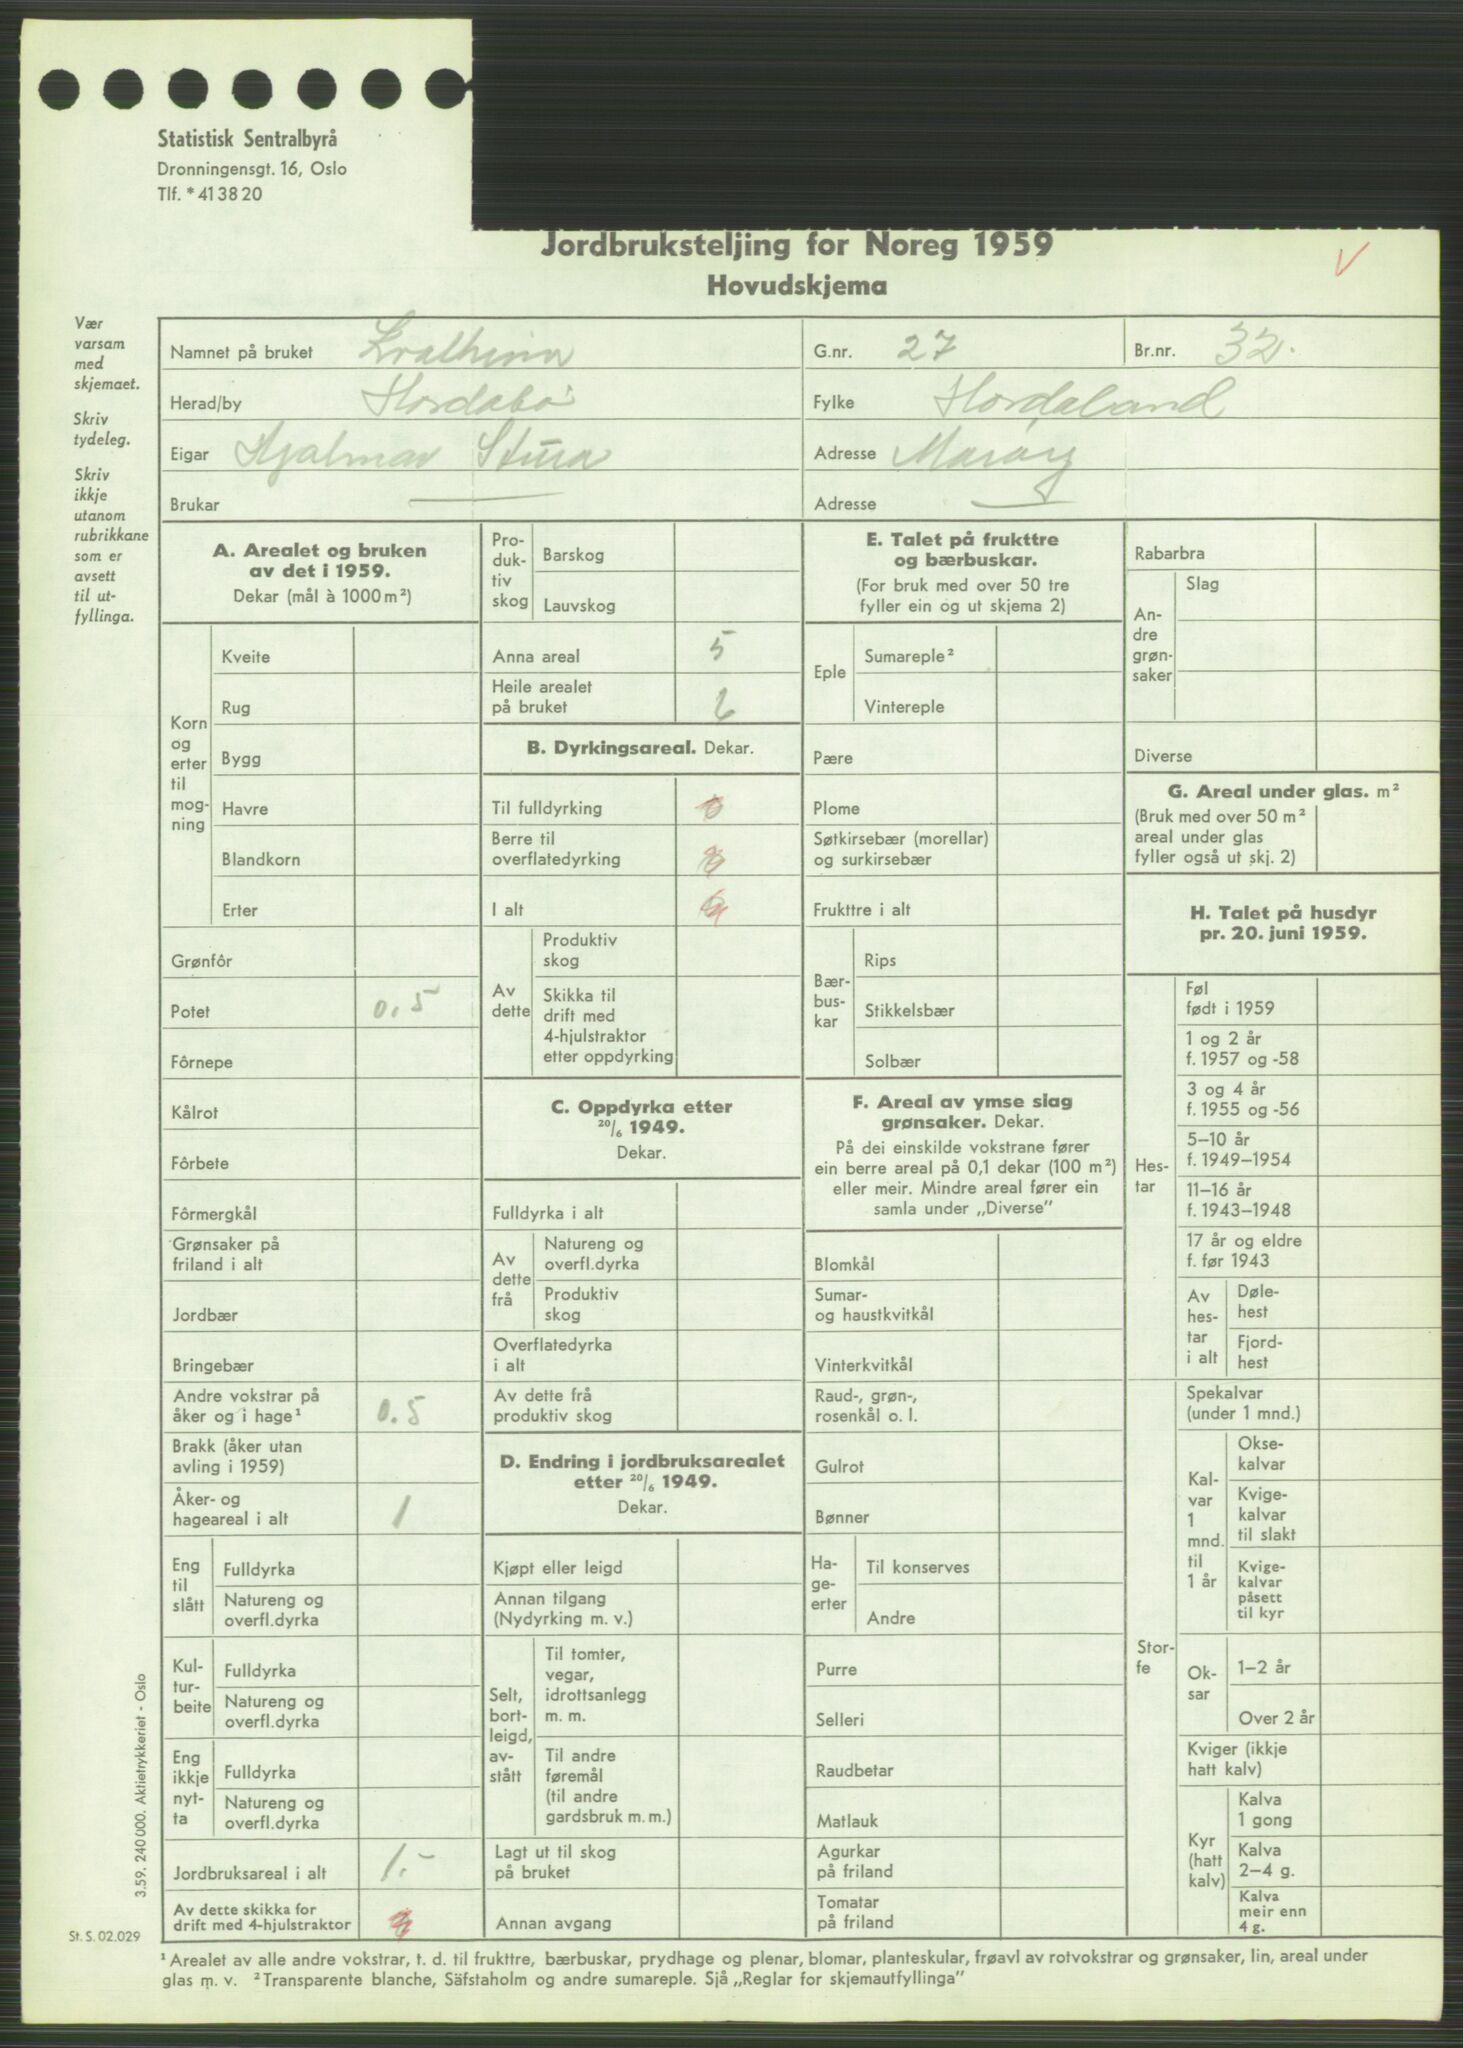 Statistisk Sentralbyrå
Dronningensgt. 16, Oslo
Tlf. * 41 38 20
Jordbruksteljing for Noreg 1959
Hovudskjema
Vær
varsam
med
skjemaet.
Skriv
tydeleg.
Skriv
ikkje
utanom
rubrikkane
som er
avsett
til ut-
fyllinga.
Namnet på bruket
G.nr. 27
Br.nr. 32.
Herad/by Hordabø
Fylke Hordaland
Eigar Hjalmar Stura
Adresse Marøy
Brukar —
Adresse —
A. Arealet og bruken
av det i 1959.
Dekar (mål à 1000 m²)
Korn
og
erter
til
mog-
ning
Kveite
Rug
Bygg
Havre
Blandkorn
Erter
Grønfôr
Potet 0.5
Fôrnepe
Kålrot
Fôrbete
Fôrmergkål
Grønsaker på
friland i alt
Jordbær
Bringebær
Andre vokstrar på
åker og i hage¹ 0.5
Brakk (åker utan
avling i 1959)
Åker- og
hageareal i alt 1
Eng
til
slått
Fulldyrka
Natureng og
overfl.dyrka
Kul-
tur-
beite
Fulldyrka
Natureng og
overfl.dyrka
Eng
ikkje
nyt-
ta
Fulldyrka
Natureng og
overfl.dyrka
Jordbruksareal i alt 1.-
Av dette skikka for
drift med 4-hjulstraktor
Pro-
duk-
tiv
skog
Barskog
Lauvskog
Anna areal 5
Heile arealet
på bruket 6
B. Dyrkingsareal. Dekar.
Til fulldyrking
Berre til
overflatedyrking
I alt
Av
dette
Produktiv
skog
Skikka til
drift med
4-hjulstraktor
etter oppdyrking
C. Oppdyrka etter
20/6 1949.
Dekar.
Fulldyrka i alt
Av
dette
frå
Natureng og
overfl.dyrka
Produktiv
skog
Overflatedyrka
i alt
Av dette frå
produktiv skog
D. Endring i jordbruksarealet
etter 20/6 1949.
Dekar.
Kjøpt eller leigd
Annan tilgang
(Nydyrking m. v.)
Selt,
bort-
leigd,
av-
stått
Til tomter,
vegar,
idrottsanlegg
m. m.
Til andre
føremål
(til andre
gardsbruk m. m.)
Lagt ut til skog
på bruket
Annan avgang
E. Talet på frukttre
og bærbuskar.
(For bruk med over 50 tre
fyller ein og ut skjema 2)
Eple
Sumareple²
Vintereple
Pære
Plome
Søtkirsebær (morellar)
og surkirsebær
Frukttre i alt
Bær-
bus-
kar
Rips
Stikkelsbær
Solbær
F. Areal av ymse slag
grønsaker. Dekar.
På dei einskilde vokstrane fører
ein berre areal på 0,1 dekar (100 m²)
eller meir. Mindre areal fører ein
samla under „Diverse”
Blomkål
Sumar-
og haustkvitkål
Vinterkvitkål
Raud-, grøn-,
rosenkål o. l.
Gulrot
Bønner
Ha-
ge-
erter
Til konserves
Andre
Purre
Selleri
Raudbetar
Matlauk
Agurkar
på friland
Tomatar
på friland
Rabarbra
An-
dre
grøn-
saker
Slag
Diverse
G. Areal under glas. m²
(Bruk med over 50 m²
areal under glas
fyller også ut skj. 2)
H. Talet på husdyr
pr. 20. juni 1959.
Hes-
tar
Føl
født i 1959
1 og 2 år
f. 1957 og -58
3 og 4 år
f. 1955 og -56
5–10 år
f. 1949–1954
11–16 år
f. 1943–1948
17 år og eldre
f. før 1943
Av
hes-
tar
i alt
Døle-
hest
Fjord-
hest
Stor-
fe
Spekalvar
(under 1 mnd.)
Kal-
var
1
mnd.
til
1 år
Okse-
kalvar
Kvige-
kalvar
til slakt
Kvige-
kalvar
påsett
til kyr
Ok-
sar
1–2 år
Over 2 år
Kviger (ikkje
hatt kalv)
Kyr
(hatt
kalv)
Kalva
1 gong
Kalva
2–4 g.
Kalva
meir enn
4 g.
3.59. 240 000. Aktietrykkeriet - Oslo
St. S. 02.029
¹ Arealet av alle andre vokstrar, t. d. til frukttre, bærbuskar, prydhage og plenar, blomar, planteskular, frøavl av rotvokstrar og grønsaker, lin, areal under
glas m. v. ² Transparente blanche, Säfstaholm og andre sumareple. Sjå „Reglar for skjemautfyllinga”